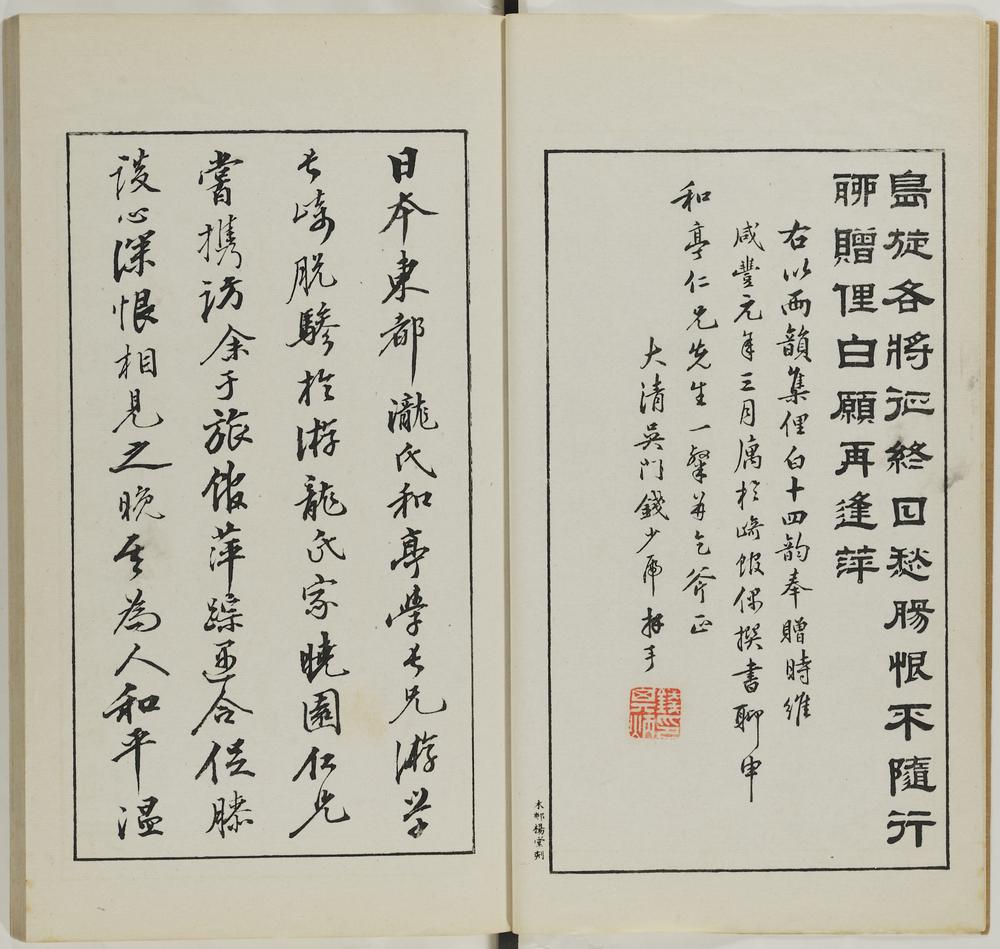 島旋各將征終日愁腸恨不隨行
聊贈俚句願再逢萍
右以西韻集俚句十四韵奉贈時維
咸豐元年三月寓於崎館保撰書聊申
和亭仁兄先生一粲并乞斧正
大清吳門錢少虎拜手
木邨楊堂刻
日本東都瀧氏和亭學長兄游学
長崎脱驂於游龍氏家曉園仁兄
嘗携訪余于旅館萍踪遇合促膝
談心深恨相見之晚其為人和平溫